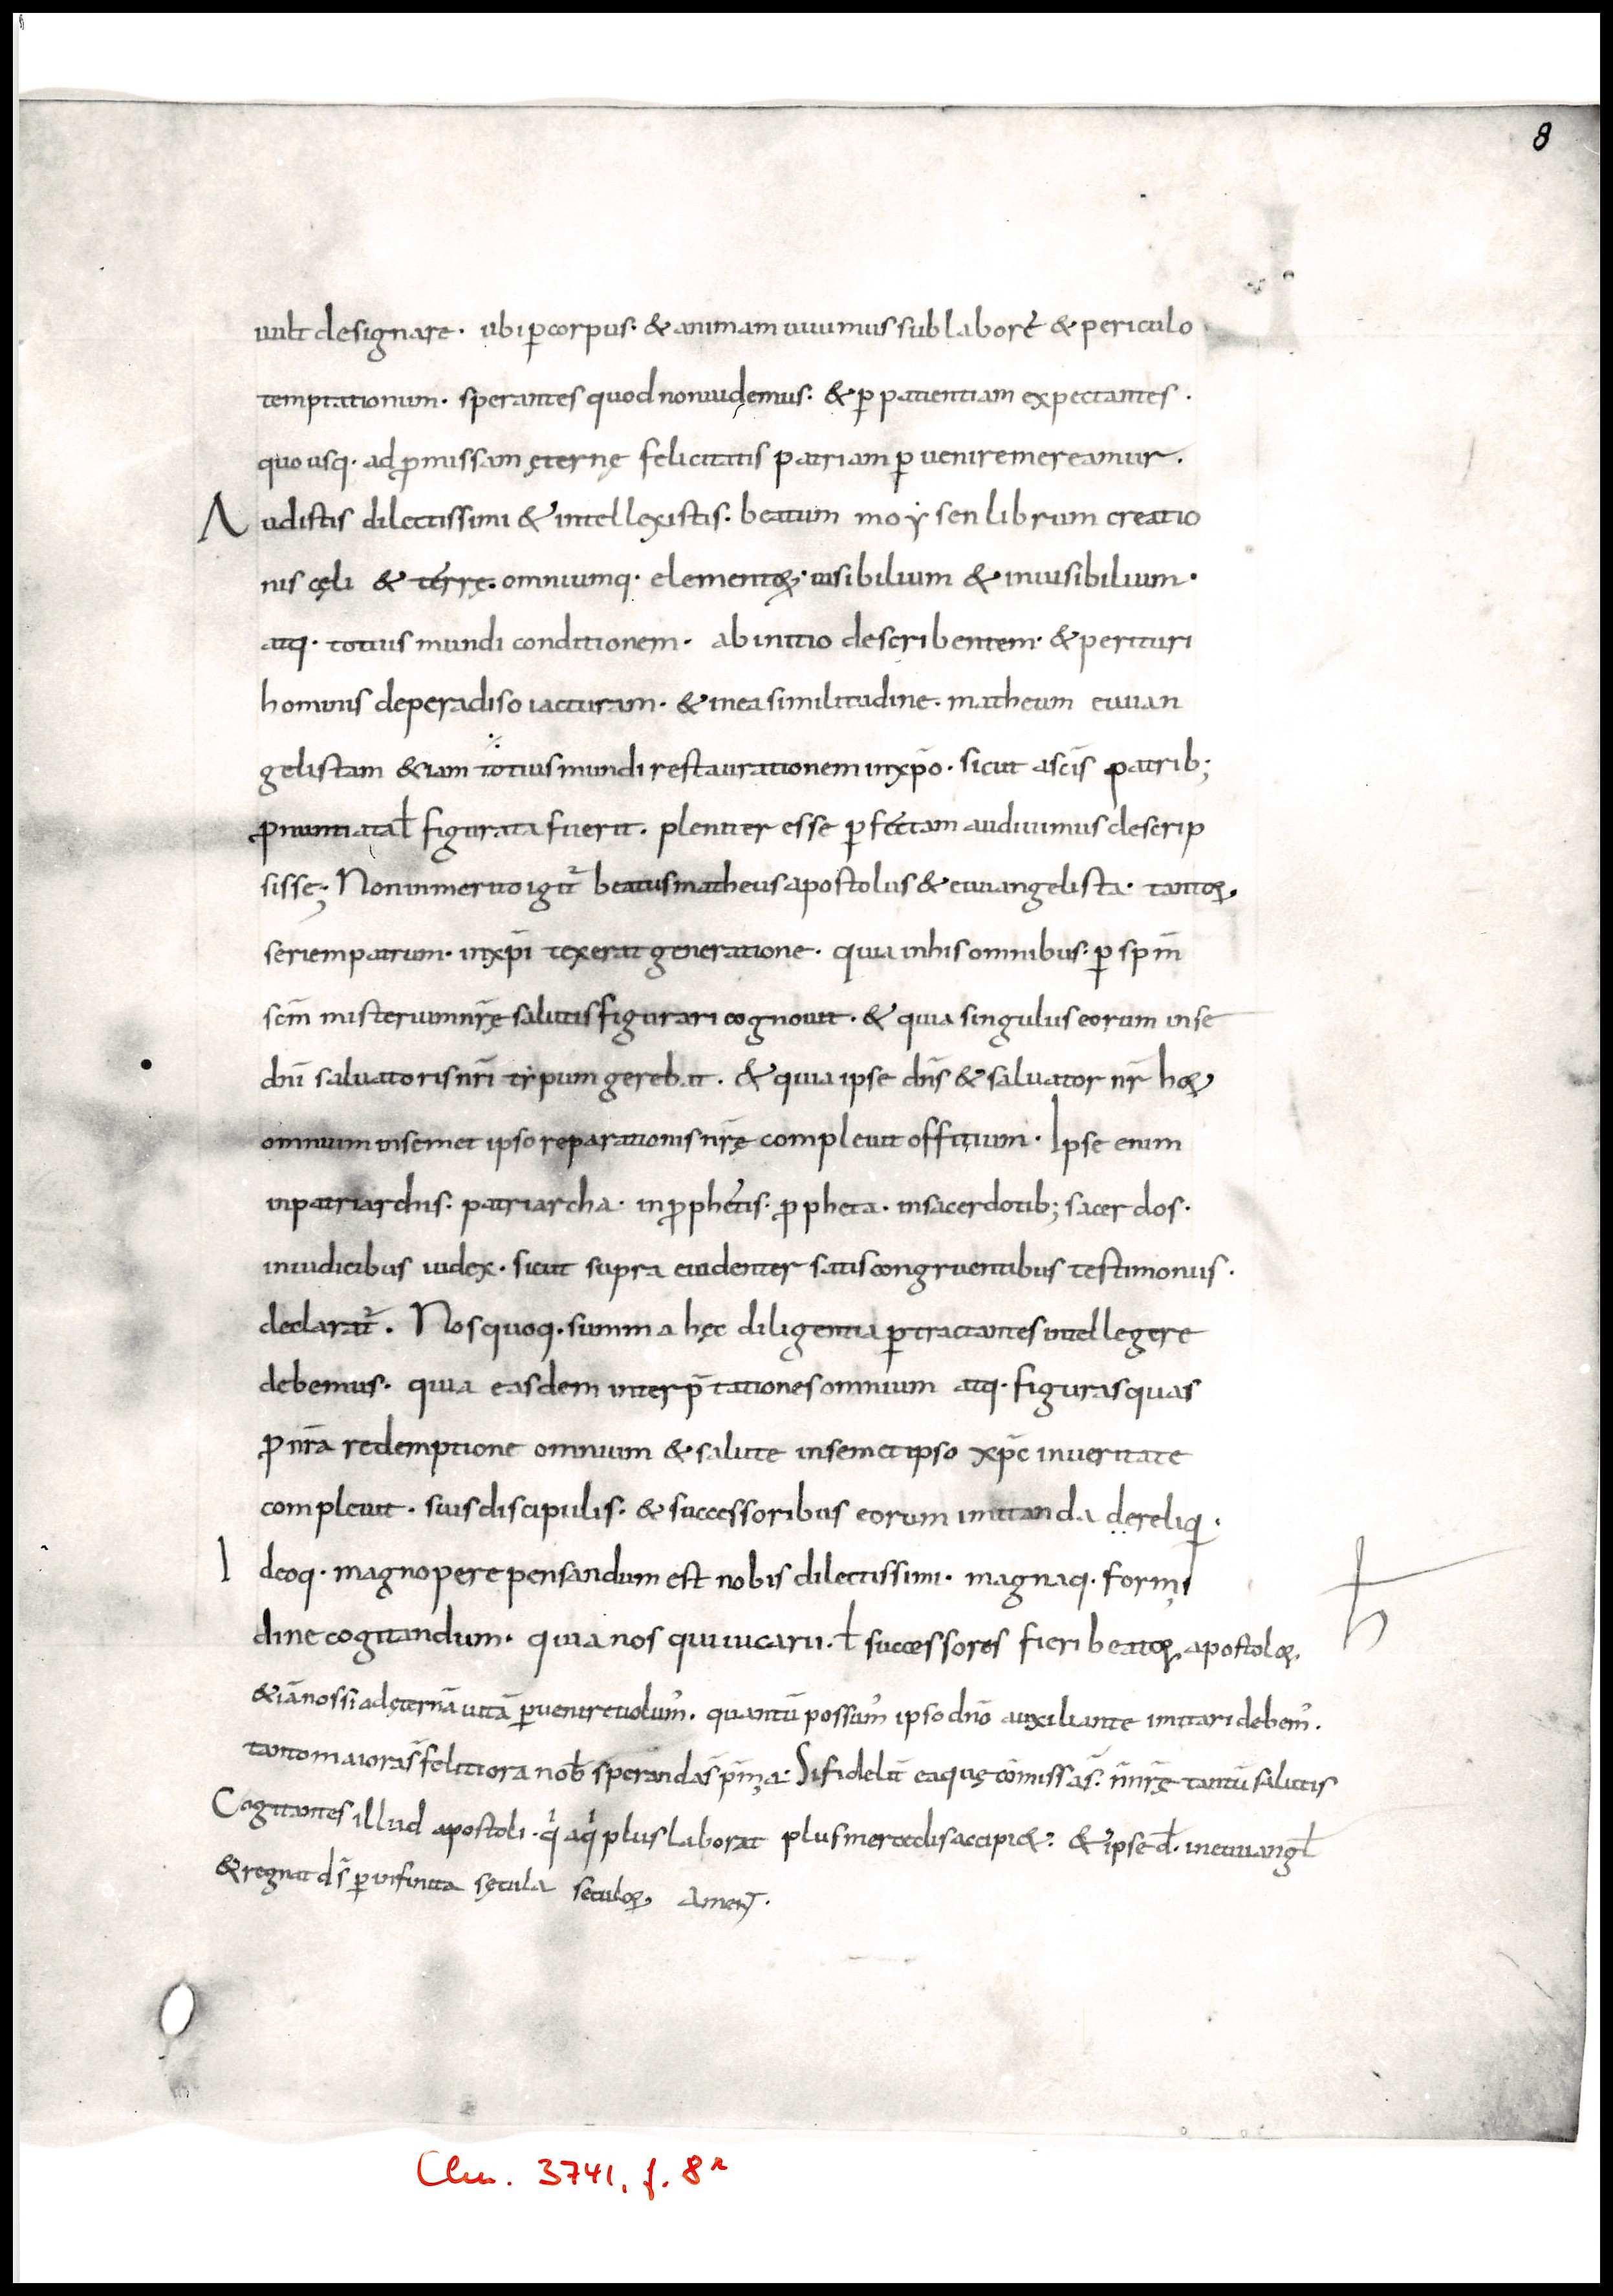 8
uult designare · ubi ꝑ corpus · & animam uiuimus sub labore & periculo
temptationum · sperantes quod non uidemus · & ꝑ patientiam expectantes ·
quo usq · ad ꝓmissam ęternę felicitatis patriam ꝑ uenire mereamur ·
Audistis dilectissimi & intellexistis · beatum moysen librum creatio
nis cęli & terrę · omniumq · elementoꝝ · uisibilium & inuisibilium ·
atq · totius mundi conditionem · ab initio describentem · & perituri
hominis de peradiso iacturam · & in ea similitudine · matheum euuan
gelistam &iam totius mundi restaurationem in xp̄o · sicut a sc̄is patrib;
ꝓnuntiata ł figurata fuerit · pleniter esse ꝑfectam audiuimus descrip
sisse; Non inmerito igit᷑ beatus matheus apostolus & euuangelista · tantoꝝ
seriem patrum · in xp̄i texerat generatione · quia in his omnibus · ꝑ sp̄m
sc̄m misterium nr̄ę salutis figurari cognouit · & quia singulus eorum in se
dn̄i saluatoris nr̄i typum gerebat · & quia ipse dn̄s & saluator nr̄ hoꝝ
omnium in semet ipso reparationis nr̄ę compleuit offitium · Ipse enim
in patriarchis · patriarcha · in ꝓphetis · ꝓpheta · in sacerdotib; sacerdos ·
in iudicibus iudex · sicut supra euidenter satis congruentibus testimoniis ·
declarat᷑ · Nos quoq · summa hęc diligentia ꝑtractantes intellegere
debemus · quia easdem interp̄tationes omnium atq · figuras quas
ꝓ nr̄a redemptione omnium & salute in semet ipso xp̄c in ueritate
compleuit · suis discipulis · & successoribus eorum imitanda dereliq ·
Ideoq · magnopere pensandum est nobis dilectissimi · magnaq · formi
dine cogitandum · quia nos qui uicarii · ł successores fieri beatoꝝ apostoloꝝ
&iā nos si ad ęternā uitā ꝑuenire uolum᾿ · quantū possum᾿ ipso dn̄o auxiliante imitari debem᾿ ·
tanto maiora s̄ felitiora nob̄ speranda s̄ p̄mia · Si fidelit̄ ea quę cōmissa s̄ · n̄ nr̄ę tantū salutis
Cogitantes illud apostoli · q᷑ aq᷑ plus laborat plus mercedis accipi& · & ipse d̄ · in euuangł
& regnat ds̄ ꝑ infinita sęcula seculoꝝ Amen ·
Clm. 3741, f. 8r